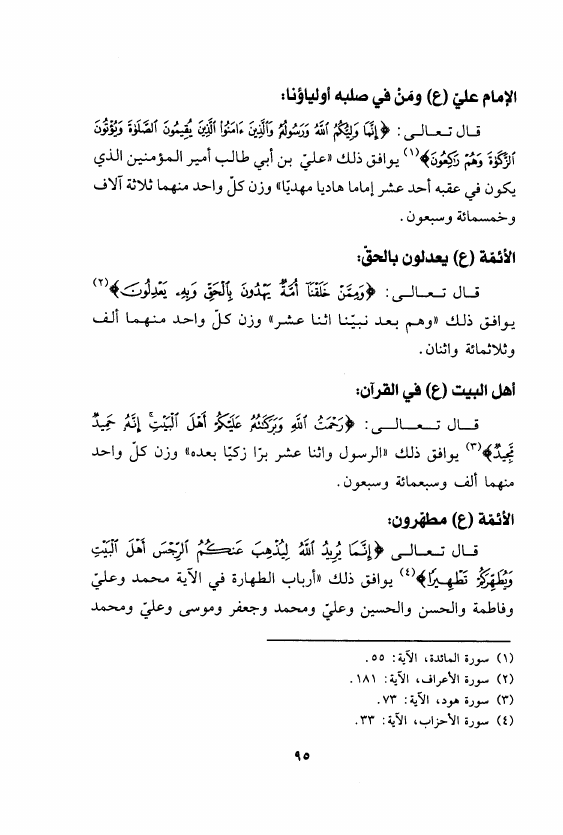 الإمام عليّ (ع) ومَنْ في صلبه أولياؤنا:
قال تعالى: ﴿إِنَّمَا وَلِيُّكُمُ اللَّهُ وَرَسُولُهُ وَالَّذِينَ ءَامَنُوا الَّذِينَ يُقِيمُونَ الصَّلَوٰةَ وَيُؤْتُونَ
الزَّكَوٰةَ وَهُمْ رَاكِعُونَ﴾(١) يوافق ذلك «عليّ بن أبي طالب أمير المؤمنين الذي
يكون في عقبه أحد عشر إماما هاديا مهديّا» وزن كلّ واحد منهما ثلاثة آلاف
وخمسمائة وسبعون.
الأئمّة (ع) يعدلون بالحقّ:
قال تعالى: ﴿وَمِمَّنْ خَلَقْنَا أُمَّةٌ يَهْدُونَ بِالْحَقِّ وَبِهِ يَعْدِلُونَ﴾(٢)
يوافق ذلك «وهم بعد نبيّنا اثنا عشر» وزن كلّ واحد منهما ألف
وثلاثمائة واثنان.
أهل البيت (ع) في القرآن:
قال تعالى: ﴿رَحْمَتُ اللَّهِ وَبَرَكَاتُهُ عَلَيْكُمْ أَهْلَ الْبَيْتِ إِنَّهُ حَمِيدٌ
مَّجِيدٌ﴾(٣) يوافق ذلك «الرسول واثنا عشر برّا زكيّا بعده» وزن كلّ واحد
منهما ألف وسبعمائة وسبعون.
الأئمّة (ع) مطهّرون:
قال تعالى ﴿إِنَّمَا يُرِيدُ اللَّهُ لِيُذْهِبَ عَنكُمُ الرِّجْسَ أَهْلَ الْبَيْتِ
وَيُطَهِّرَكُمْ تَطْهِيرًا﴾(٤) يوافق ذلك «أرباب الطهارة في الآية محمد وعليّ
وفاطمة والحسن والحسين وعليّ ومحمد وجعفر وموسى وعليّ ومحمد
(١) سورة المائدة، الآية: ٥٥.
(٢) سورة الأعراف، الآية: ١٨١.
(٣) سورة هود، الآية: ٧٣.
(٤) سورة الأحزاب، الآية: ٣٣.
٩٥